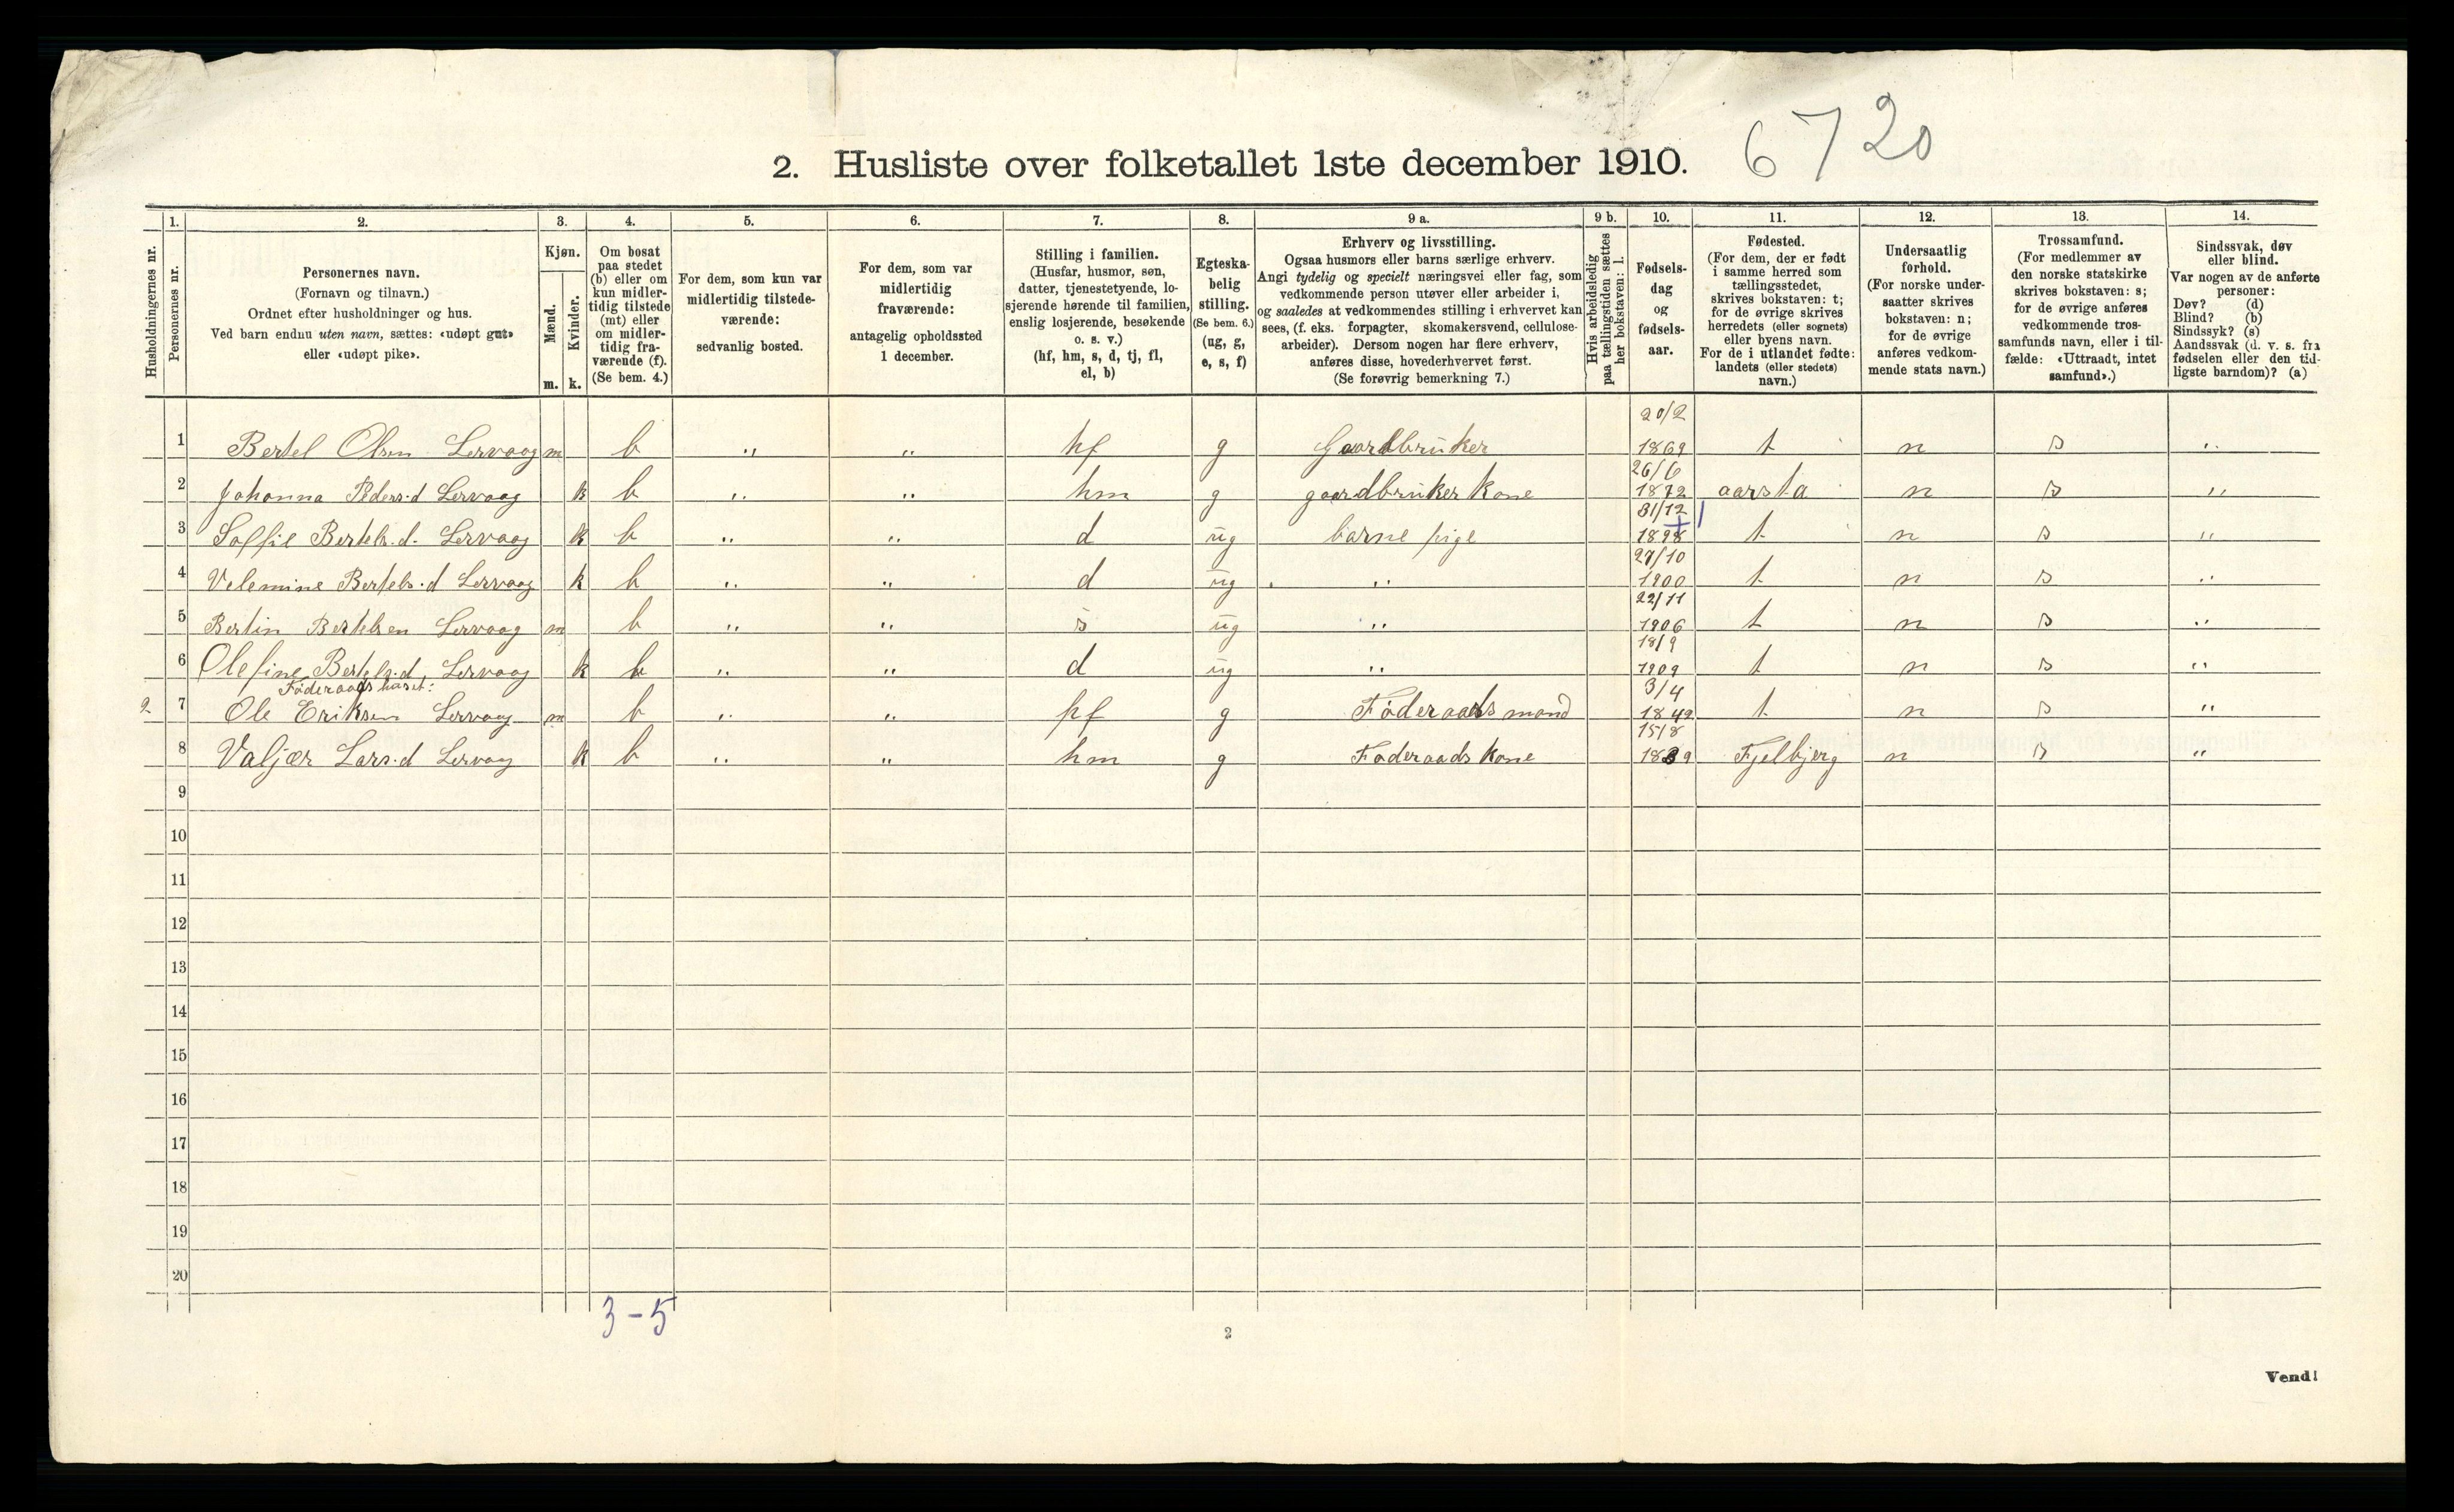 2. Husliste over folketallet 1ste december 1910. 6720
Husholdningernes nr.
1.
Personernes nr.
2.
Personernes navn.
(Fornavn og tilnavn.)
Ordnet efter husholdninger og hus.
Ved barn endnu uten navn, sættes: «udøpt gut»
eller «udøpt pike».
3.
Kjøn.
Mænd.
m.
Kvinder.
k.
4.
Om bosat
paa stedet
(b) eller om
kun midler-
tidig tilstede
(mt) eller
om midler-
tidig fra-
værende (f).
(Se bem. 4.)
5.
For dem, som kun var
midlertidig tilstede-
værende:
sedvanlig bosted.
6.
For dem, som var
midlertidig
fraværende:
antagelig opholdssted
1 december.
7.
Stilling i familien.
(Husfar, husmor, søn,
datter, tjenestetyende, lo-
sjerende hørende til familien,
enslig losjerende, besøkende
o. s. v.)
(hf, hm, s, d, tj, fl,
el, b)
8.
Egteska-
belig
stilling.
(Se bem. 6.)
(ug, g,
e, s, f)
9 a.
Erhverv og livsstilling.
Ogsaa husmors eller barns særlige erhverv.
Angi tydelig og specielt næringsvei eller fag, som
vedkommende person utøver eller arbeider i,
og saaledes at vedkommendes stilling i erhvervet kan
sees, (f. eks. forpagter, skomakersvend, cellulose-
arbeider). Dersom nogen har flere erhverv,
anføres disse, hovederhvervet først.
(Se forøvrig bemerkning 7.)
9 b.
Hvis arbeidsledig
paa tællingstiden sættes
her bokstaven: l.
10.
Fødsels-
dag
og
fødsels-
aar.
11.
Fødested.
(For dem, der er født
i samme herred som
tællingsstedet,
skrives bokstaven: t;
for de øvrige skrives
herredets (eller sognets)
eller byens navn.
For de i utlandet fødte:
landets (eller stedets)
navn.)
12.
Undersaatlig
forhold.
(For norske under-
saatter skrives
bokstaven: n;
for de øvrige
anføres vedkom-
mende stats navn.)
13.
Trossamfund.
(For medlemmer av
den norske statskirke
skrives bokstaven: s;
for de øvrige anføres
vedkommende tros-
samfunds navn, eller i til-
fælde: «Uttraadt, intet
samfund».)
14.
Sindssvak, døv
eller blind.
Var nogen av de anførte
personer:
Døv? (d)
Blind? (b)
Sindssyk? (s)
Aandssvak (d. v. s. fra
fødselen eller den tid-
ligste barndom)? (a)
1 Bertel Olsen Lervaag m b " " hf g Gaardbruker 20/2 1869 t n s "
2 Johanna Peders.d Lervaag k b " " hm g gaardbruker kone 26/6 1872 aarsta n s "
3 Soffie Bertels.d. Lervaag k b " " d ug barne pige 31/12 1898 t n s "
4 Velemine Bertels.d Lervaag k b " " d ug " 29/10 1900 t n s "
5 Bertin Bertelsen Lervaag m b " " s ug " 22/11 1906 t n s "
6 Olefine Bertels.d, Lervaag k b " " d ug " 18/9 1909 t n s "
Føderaads huset:
2 7 Ole Eriksen Lervaag m b " " hf g Føderaads mand 3/4 1842 t n s "
8 Valjær Lars.d Lervaag k b " " hm g Føderaads kone 15/8 1839 Fjelbjerg n s "
9
10
11
12
13
14
15
16
17
18
19
20
3-5
2
Vend!